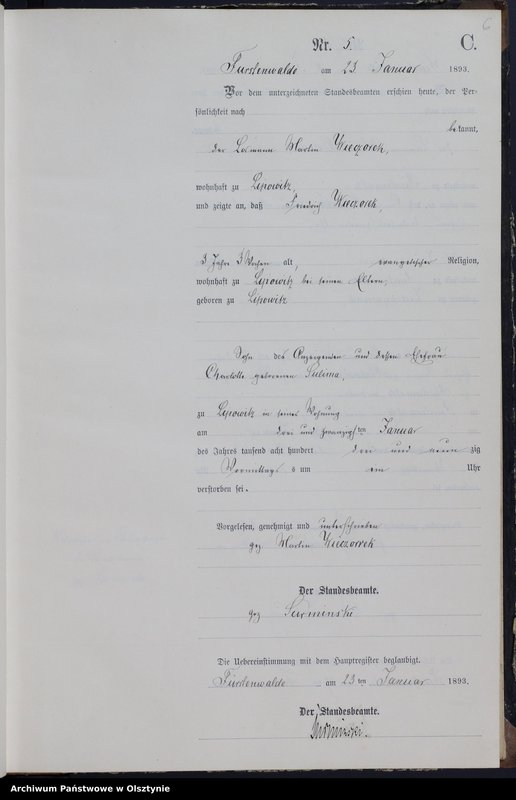 6
Nr. 5.
C.
Fürstenwalde am 23. Januar 1893.
Vor dem unterzeichneten Standesbeamten erschien heute, der Per-
sönlichkeit nach
bekannt,
der Losmann Martin Wieczorek,
wohnhaft zu Lipowitz,
und zeigte an, daß Friedrich Wieczorek,
3 Jahre 3 Wochen alt, evangelischer Religion,
wohnhaft zu Lipowitz bei seinen Eltern,
geboren zu Lipowitz
Sohn des Anzeigenden und dessen Ehefrau
Charlotte geborenen Sulima,
zu Lipowitz in seiner Wohnung
am drei und zwanzigsten Januar
des Jahres tausend acht hundert drei und neunzig
Vormittags um ein Uhr
verstorben sei.
Vorgelesen, genehmigt und unterschrieben
gez. Martin Wieczorek
Der Standesbeamte.
gez Surminski
Die Uebereinstimmung mit dem Hauptregister beglaubigt.
Fürstenwalde am 23ten Januar 1893.
Der Standesbeamte.
Surminski.
Archiwum Państwowe w Olsztynie